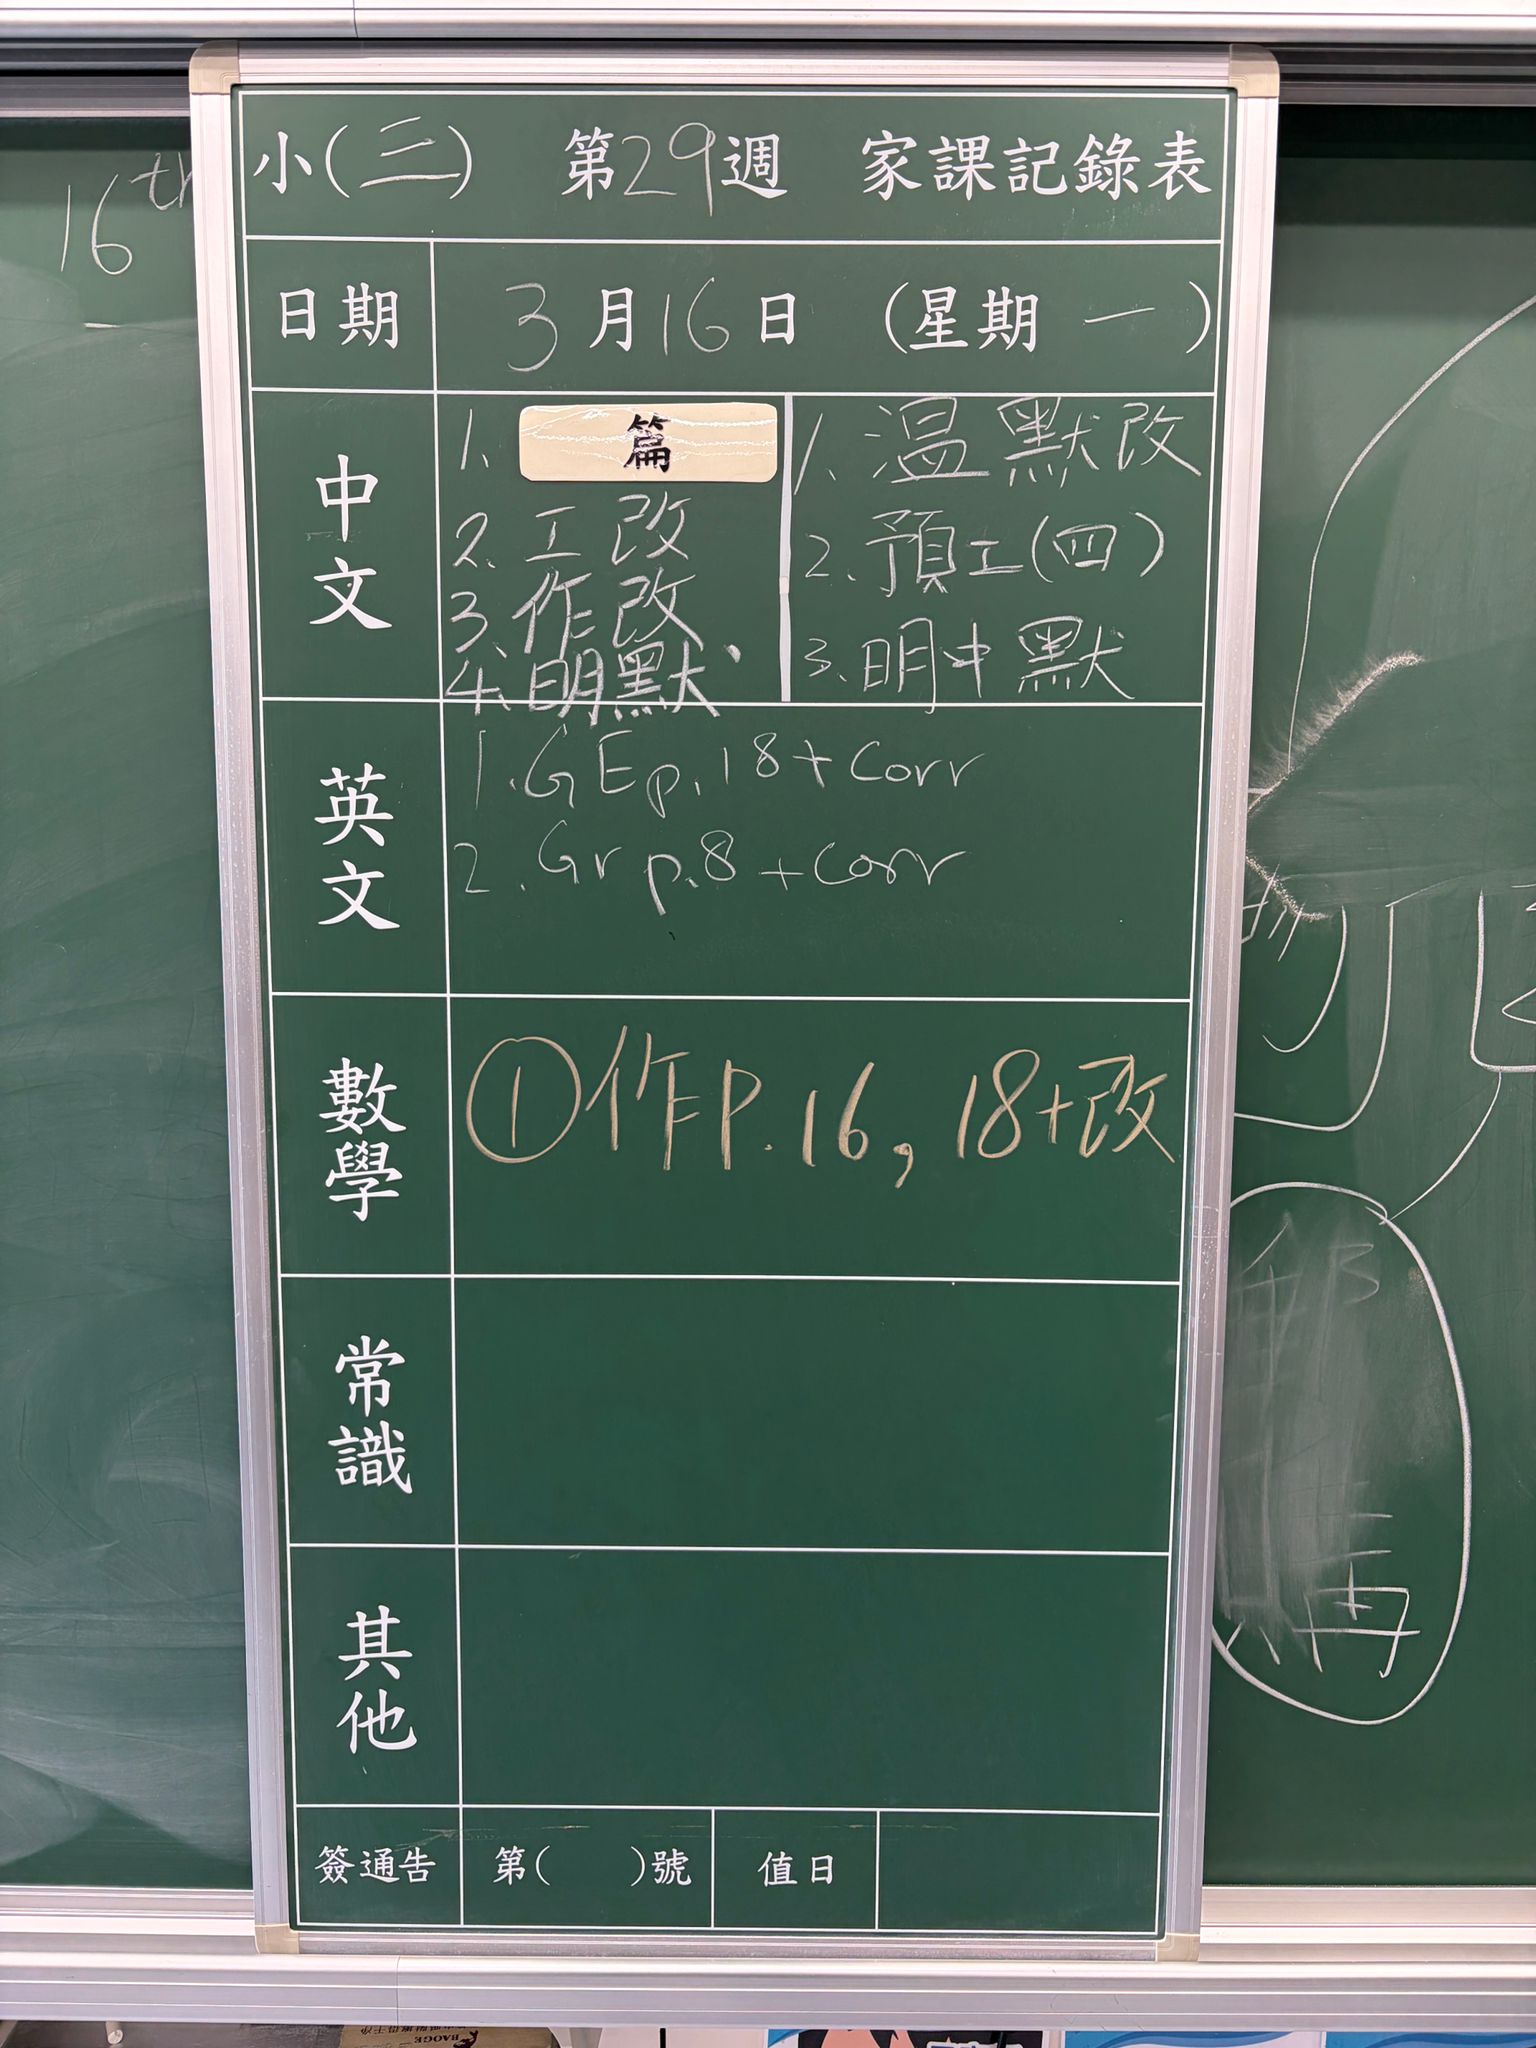 16th
小(三) 第29週 家課記錄表
日期 3月16日 (星期一)
中文
1. 篇
2. 工改
3. 作改
4. 明默
1. 溫默改
2. 預工(四)
3. 明中默
英文
1. GE p.18 + Corr
2. Gr p.8 + Corr
數學
① 作P.16, 18+改
常識
其他
簽通告 第( )號 值日
BAOGE